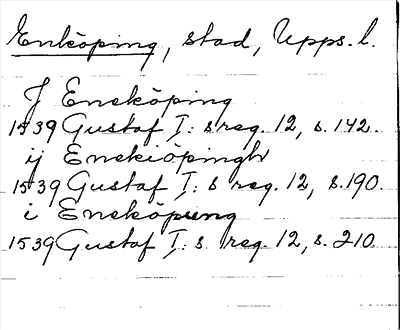 Enköping, stad, Upps. l.
J Eneköping
1539 Gustaf I: s reg. 12, s. 142.
ij Enekiöpingh
1539 Gustaf I: s reg. 12, s. 190
i Eneköpung
1539 Gustaf I: s reg. 12, s. 210.